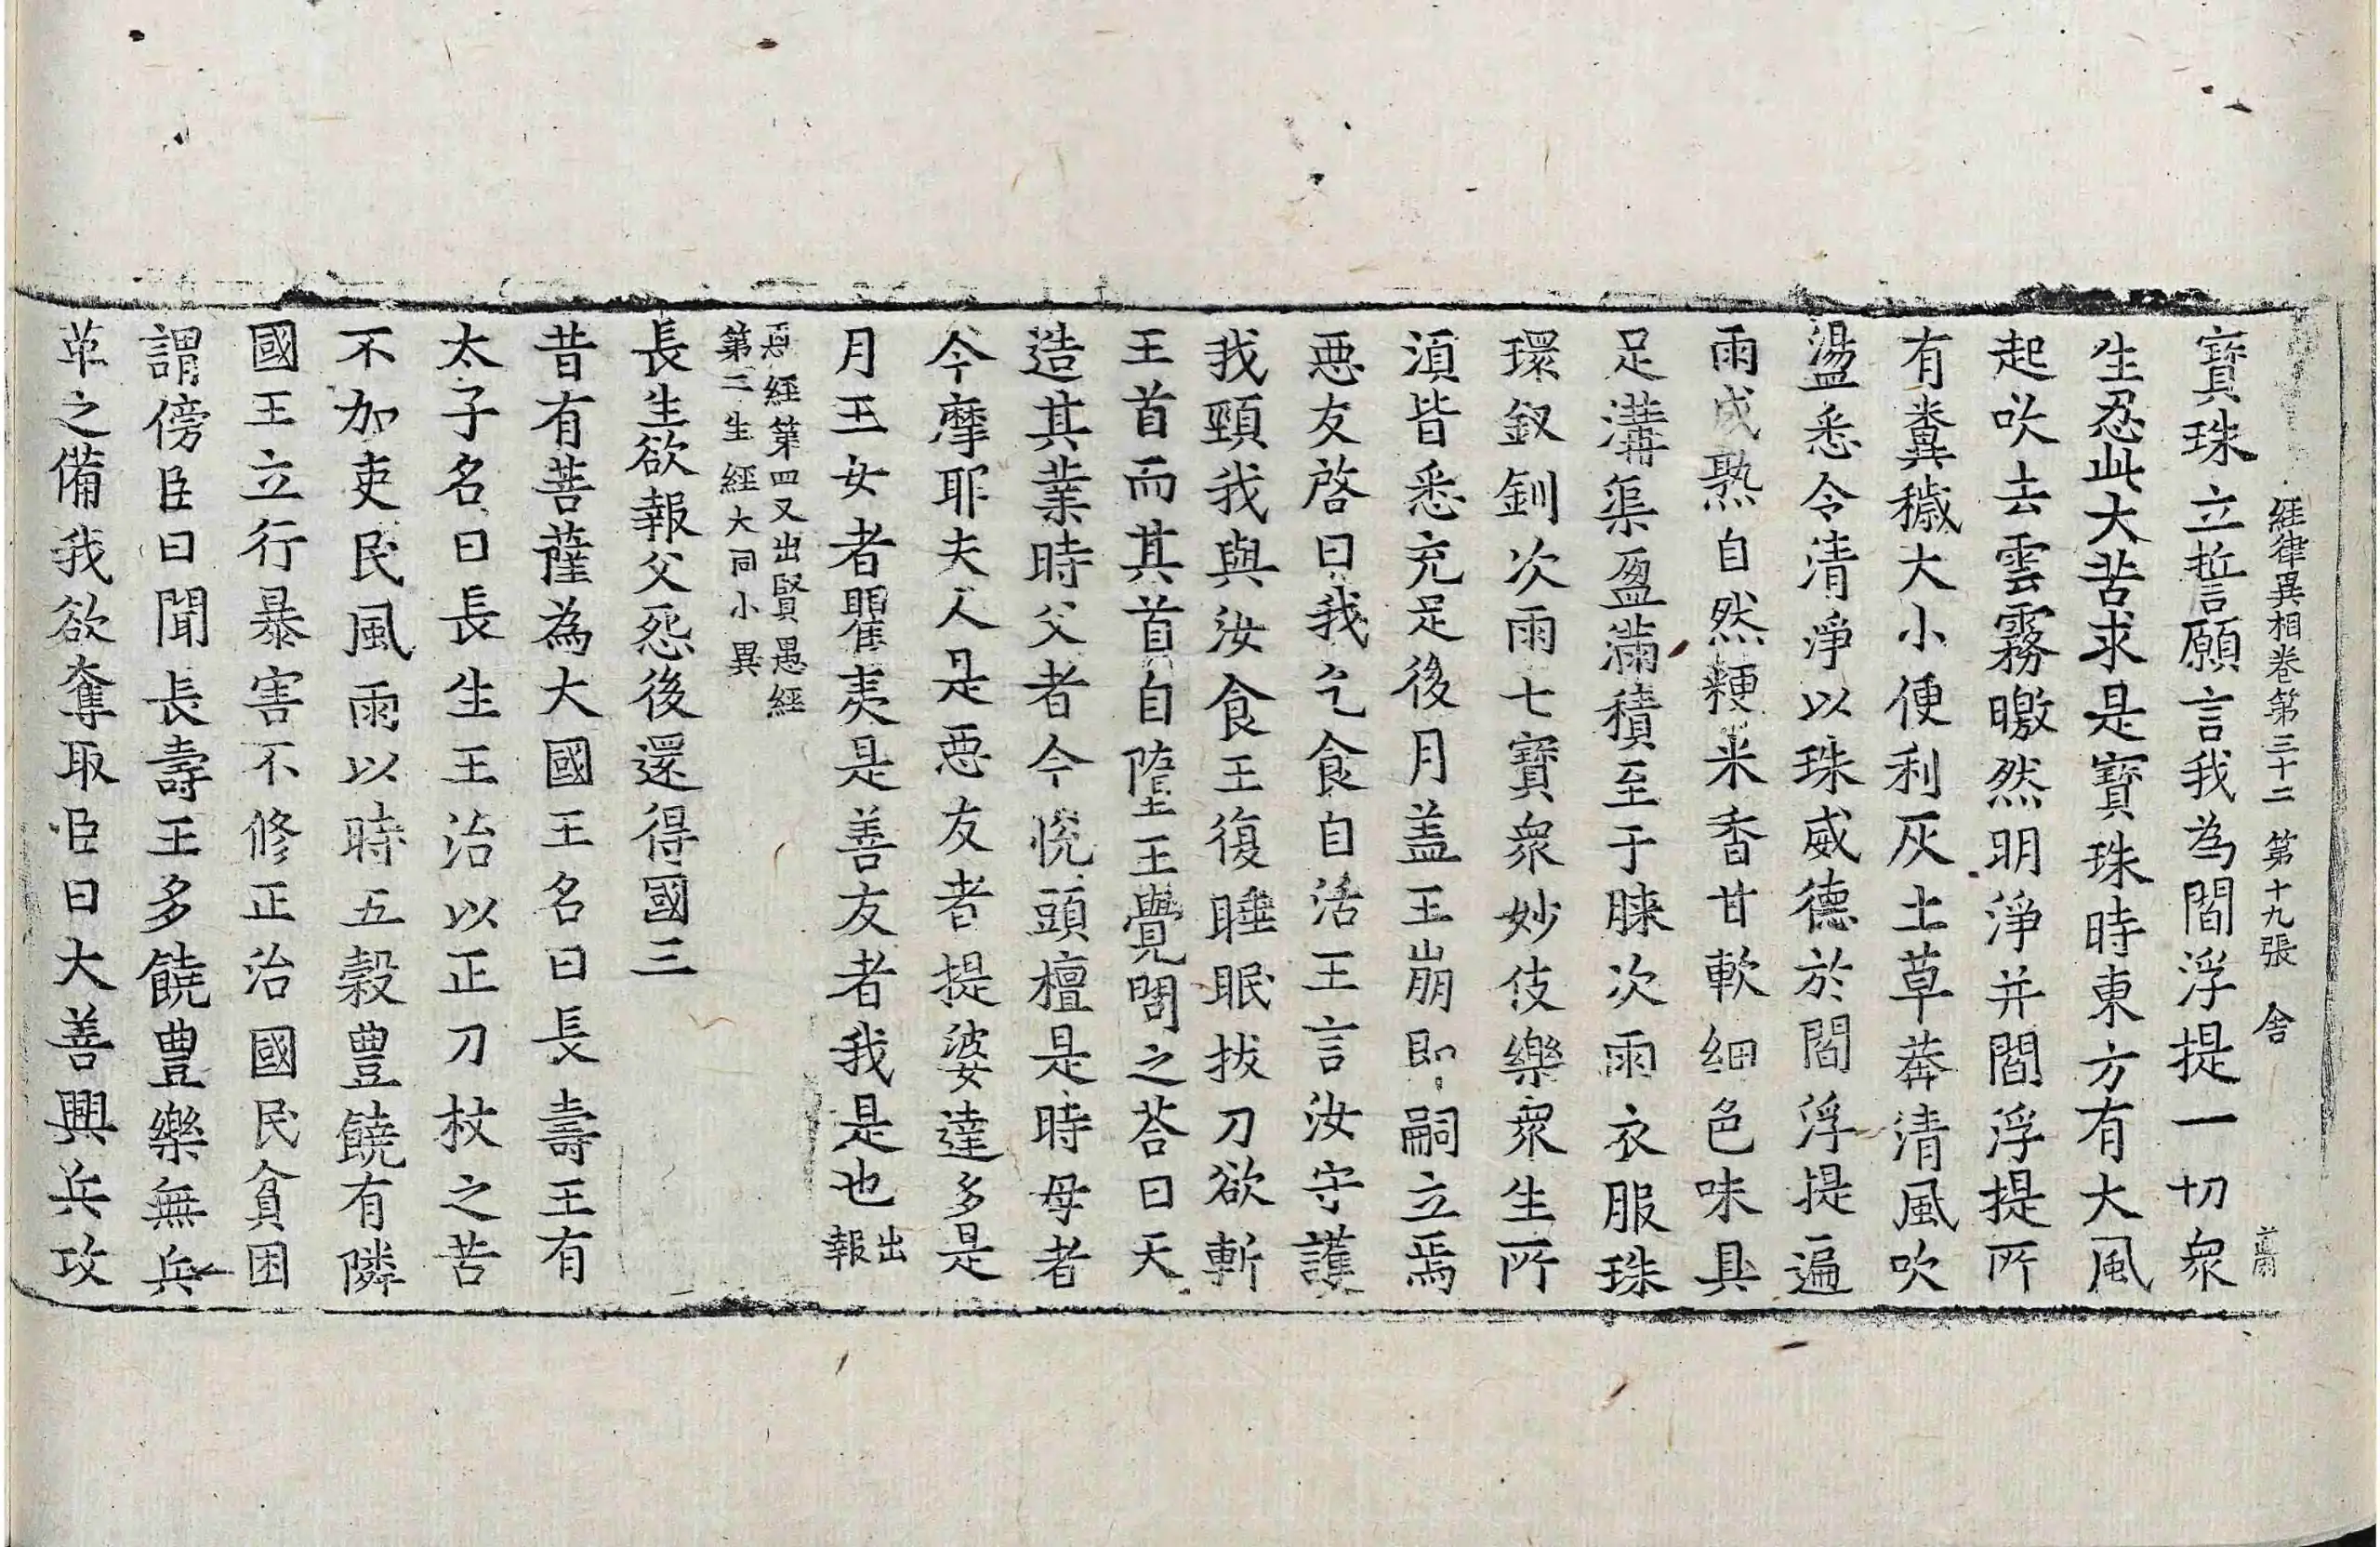 經律異相卷第三十二 第十九張 舍
寶珠立誓願言我為閻浮提一切衆
生忍此大苦求是寶珠時東方有大風
起吹去雲霧曒然明淨并閻浮提所
有糞穢大小便利灰土草莽清風吹
盪悉令清淨以珠威德於閻浮提遍
雨成熟自然粳米香甘軟細色味具
足溝渠盈滿積至于膝次雨衣服珠
環釵釧次雨七寶衆妙伎樂衆生所
湏皆悉充足後月盖王崩即嗣立焉
惡友啓曰我乞食自活王言汝守護
我頸我與汝食王復睡眠拔刀欲斬
王首而其首自墮王覺問之荅曰天
造其業時父者今恱頭檀是時母者
今摩耶夫人是惡友者提婆達多是
月王女者瞿夷是善友者我是也出報
恩經第四又出賢愚經
第二生經大同小異
長生欲報父怨後還得國三
昔有菩薩為大國王名曰長壽王有
太子名曰長生王治以正刀杖之苦
不加吏民風雨以時五穀豊饒有隣
國王立行暴害不修正治國民貧困
謂傍臣曰聞長壽王多饒豊樂無兵
革之備我欲奪取臣曰大善興兵攻